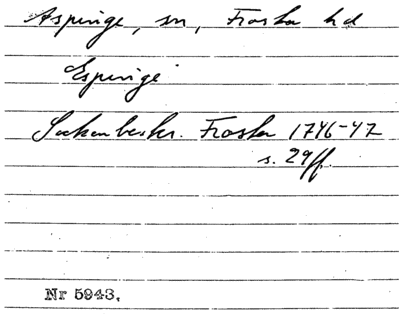 Aspinge, sn, Frosta hd
Espinge
Sockenbeskr. Frosta 1746-47
s. 29ff.
Nr 5943.